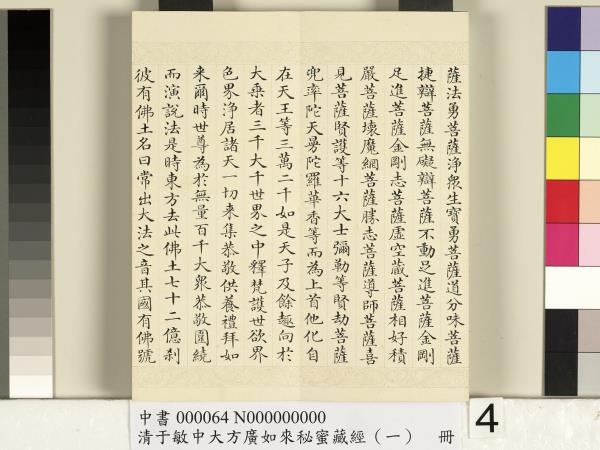 薩法勇菩薩淨眾生寶勇菩薩道分味菩薩
捷辯菩薩無礙辯菩薩不動足進菩薩金剛
足進菩薩金剛志菩薩虛空藏菩薩相好積
嚴菩薩壞魔網菩薩勝志菩薩導師菩薩喜
見菩薩賢護等十六大士彌勒等賢劫菩薩
兜率陀天曼陀羅華香等而為上首他化自
在天王等三萬二千如是天子及餘趣向於
大乘者三千大千世界之中釋梵護世欲界
色界淨居諸天一切來集恭敬供養禮拜如
來爾時世尊為於無量百千大眾恭敬圍繞
而演說法是時東方去此佛土七十二億剎
彼有佛土名曰常出大法之音其國有佛號
中書 000064 N000000000
清于敏中大方廣如來秘蜜藏經（一） 冊
4